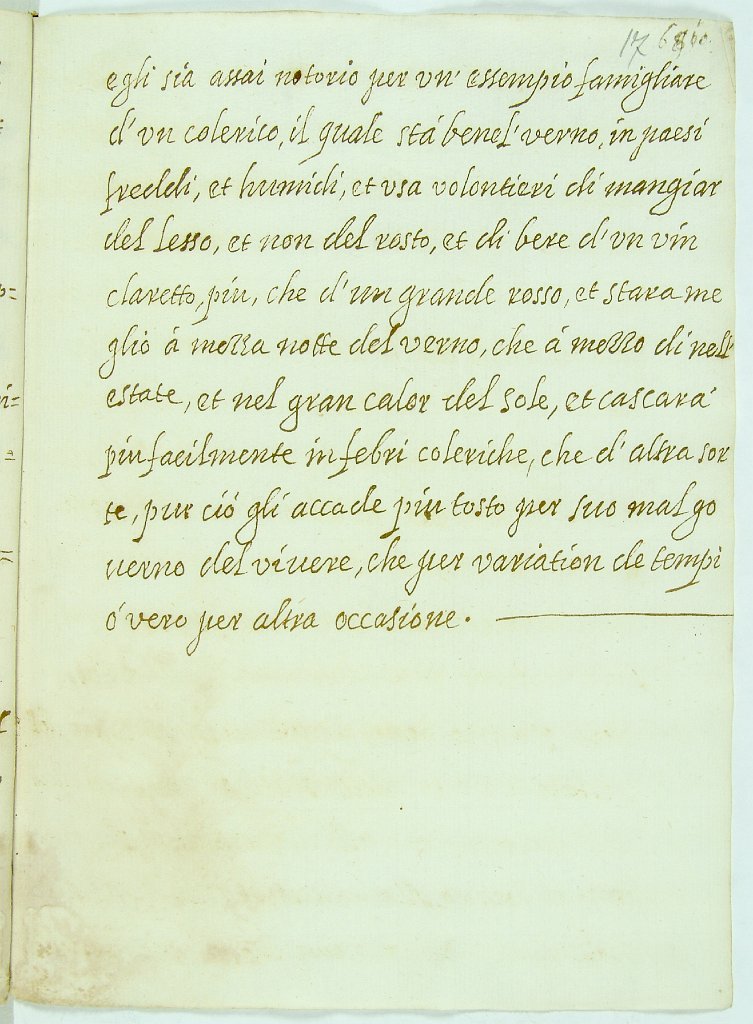 egli sia assai notorio per un' essempio famigliare
d'un colerico, il quale stá bene l'verno, in paesi
freddi, et humidi, et usa volontieri di mangiar
del lesso, et non del rosto, et di bere d'un vin
claretto, piu, che d'un grande rosso, et stara me
glio á mezza notte del verno, che á mezzo di nell'
estate, et nel gran calor del sole, et cascará
piu facilmente in febri coleriche, che d'altra sor
te, pur ció gli accade piu tosto per suo mal go
uerno del vivere, che per variation de tempi
ó vero per altra occasione.